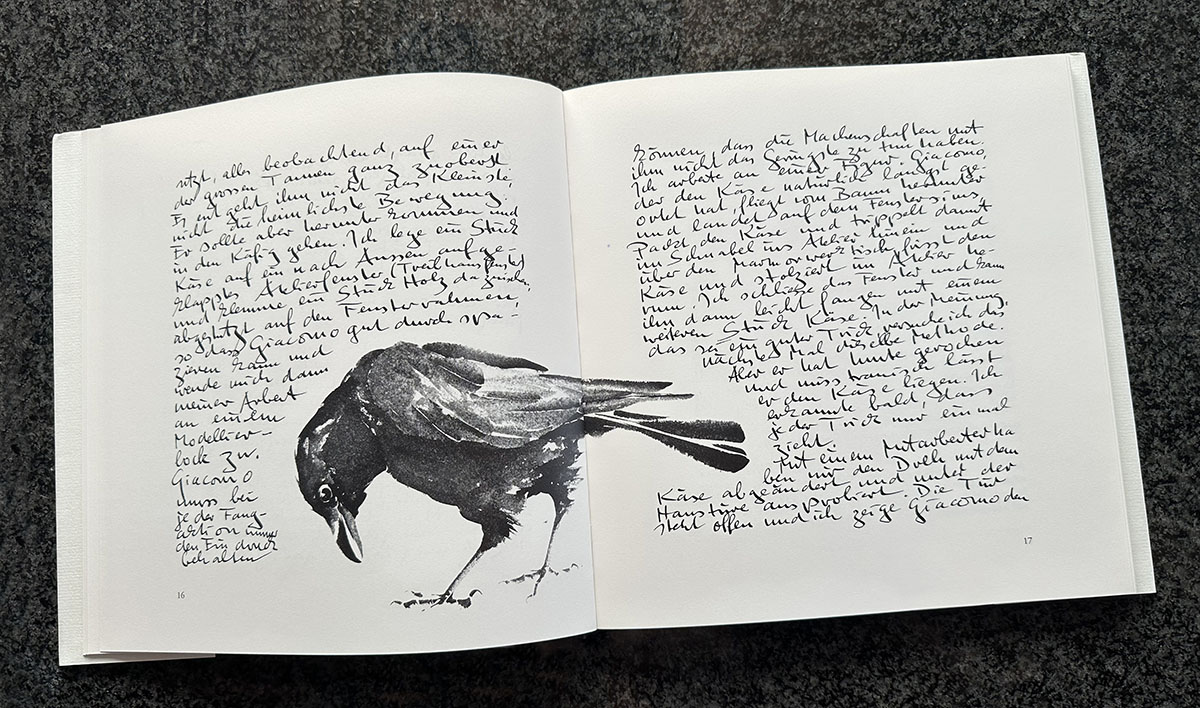 sitzt, alles beobachtend, auf einer
der grossen Tannen ganz zuoberst.
Es entgeht ihm nicht das Kleinste,
nicht die heimlichste Bewegung.
Er sollte aber herunter kommen und
in den Käfig gehen. Ich lege ein Stück
Käse auf ein nach Aussen aufge-
klapptes Atelierfenster (Treibhausfenster)
und klemme ein Stück Holz dazwischen,
abgestützt auf den Fensterrahmen,
so dass Giacomo gut durch spa-
zieren kann und
wende mich dann
meiner Arbeit
an einem
Modellier-
bock zu.
Giacomo
muss bei
jeder Fang-
aktion immer
den Eindruck
behalten
16
können, dass die Machenschaften mit
ihm nicht das Geringste zu tun haben.
Ich arbeite an einer Figur. Giacomo,
der den Käse natürlich längst ge-
ortet hat, fliegt vom Baum herunter
und landet auf dem Fenstersims.
Packt den Käse und trippelt damit
im Schnabel ins Atelier hinein und
über den Marmorwerktisch, frisst den
Käse und stolziert im Atelier he-
rum. Ich schliesse das Fenster und kann
ihn dann leicht fangen mit einem
weiteren Stück Käse. In der Meinung,
das sei ein guter Trick, versuche ich das
nächste Mal dieselbe Methode.
Aber er hat Lunte gerochen
und misstrauisch lässt
er den Käse liegen. Ich
erkannte bald, dass
jeder Trick nur einmal
zieht.
Mit einem Mitarbeiter ha
ben wir den Dreh mit dem
Käse abgeändert und unter der
Haustüre ausprobiert. Die Tür
steht offen und ich zeige Giacomo den
17